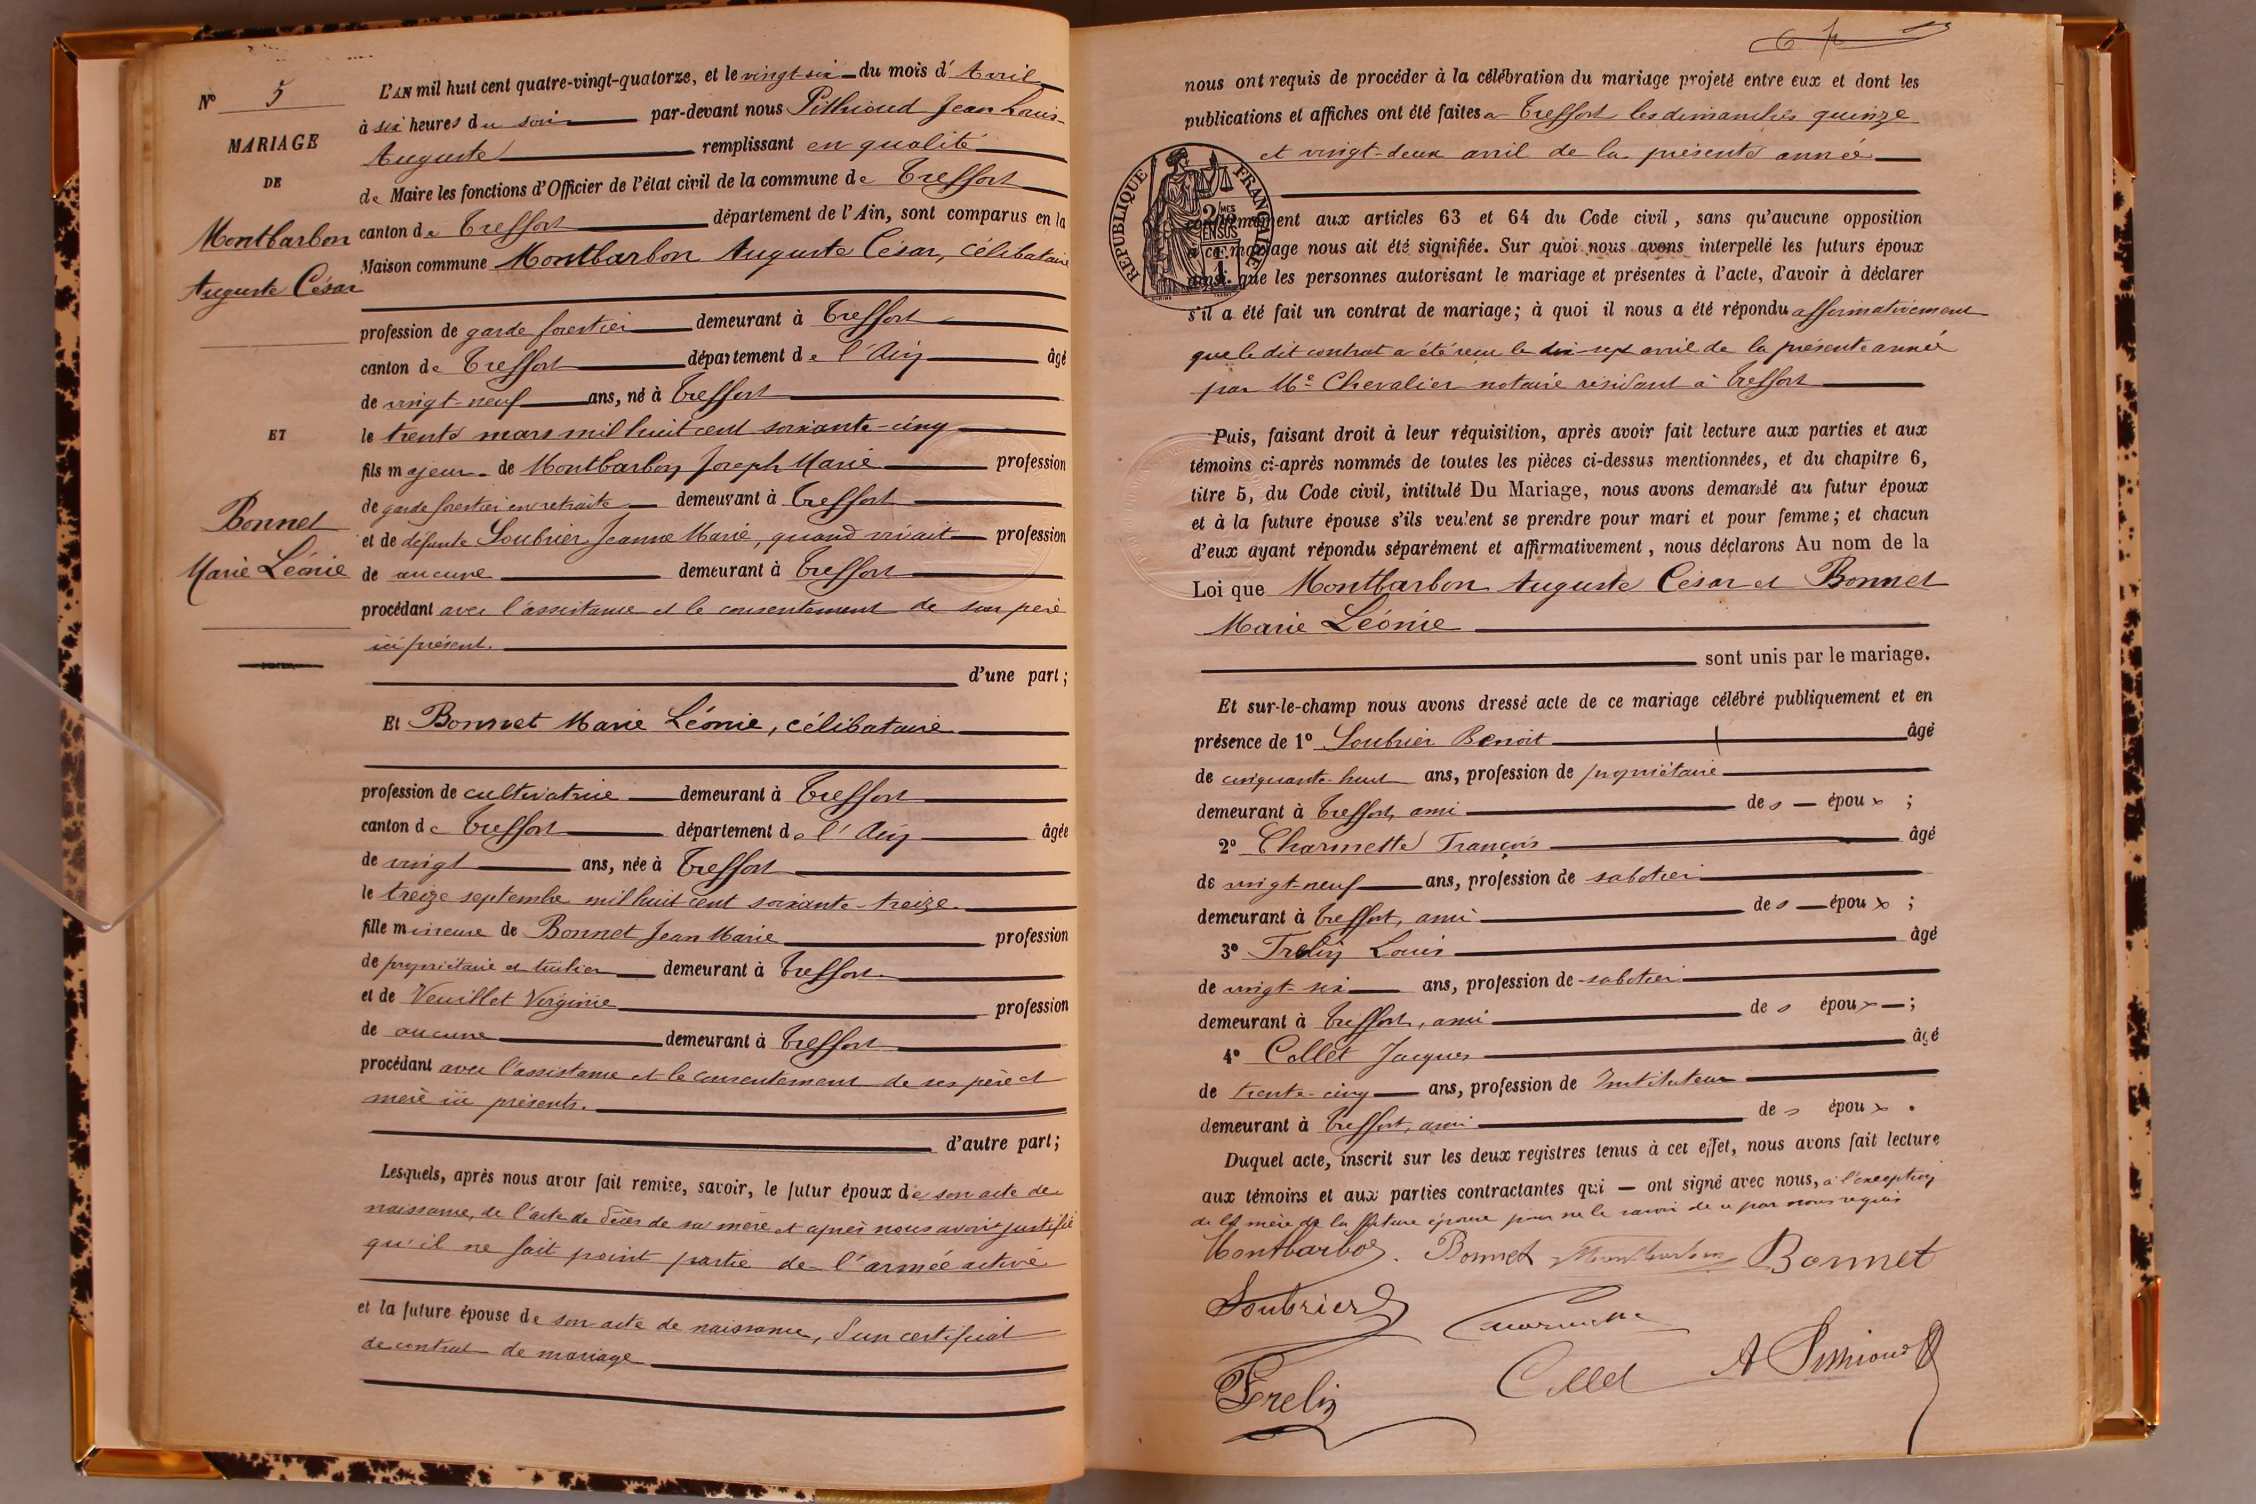 Nº 5
MARIAGE
DE
Montbarbon
Auguste César
ET
Bonnet
Marie Léonie
L'AN mil huit cent quatre-vingt-quatorze, et le vingt-six du mois d'Avril
à six heures du soir par-devant nous Pithioud Jean Louis
Auguste remplissant en qualité
de Maire les fonctions d'Officier de l'état civil de la commune de Treffort
canton de Treffort département de l'Ain, sont comparus en la
Maison commune Montbarbon Auguste César, célibataire
profession de garde forestier demeurant à Treffort
canton de Treffort département de l'Ain âgé
de vingt-neuf ans, né à Treffort
le trente mars mil huit cent soixante-cinq
fils majeur de Montbarbon Joseph Marie profession
de garde forestier en retraite demeurant à Treffort
et de défunte Soubrier Jeanne Marie, quand vivait profession
de aucune demeurant à Treffort
procédant avec l'assistance et le consentement de son père
ici présent.
d'une part;
Et Bonnet Marie Léonie, célibataire
profession de cultivatrice demeurant à Treffort
canton de Treffort département de l'Ain âgée
de vingt ans, née à Treffort
le treize septembre mil huit cent soixante-treize
fille mineure de Bonnet Jean Marie profession
de propriétaire et tuilier demeurant à Treffort
et de Veuillet Virginie profession
de aucune demeurant à Treffort
procédant avec l'assistance et le consentement de ses père et
mère ici présents.
d'autre part;
Lesquels, après nous avoir fait remise, savoir, le futur époux de son acte de
naissance, de l'acte de décès de sa mère et après nous avoir justifié
qu'il ne fait point partie de l'armée active
et la future épouse de son acte de naissance, d'un certificat
de contrat de mariage
nous ont requis de procéder à la célébration du mariage projeté entre eux et dont les
publications et affiches ont été faites a Treffort les dimanches quinze
et vingt-deux avril de la présente année
RÉPUBLIQUE FRANÇAISE
conformément aux articles 63 et 64 du Code civil, sans qu'aucune opposition
à ce mariage nous ait été signifiée. Sur quoi nous avons interpellé les futurs époux
ainsi que les personnes autorisant le mariage et présentes à l'acte, d'avoir à déclarer
s'il a été fait un contrat de mariage; à quoi il nous a été répondu affirmativement
que le dit contrat a été reçu le dix-sept avril de la présente année
par Me Chevalier notaire résidant à Treffort
Puis, faisant droit à leur réquisition, après avoir fait lecture aux parties et aux
témoins ci-après nommés de toutes les pièces ci-dessus mentionnées, et du chapitre 6,
titre 5, du Code civil, intitulé Du Mariage, nous avons demandé au futur époux
et à la future épouse s'ils veulent se prendre pour mari et pour femme; et chacun
d'eux ayant répondu séparément et affirmativement, nous déclarons Au nom de la
Loi que Montbarbon Auguste César et Bonnet
Marie Léonie
sont unis par le mariage.
Et sur-le-champ nous avons dressé acte de ce mariage célébré publiquement et en
présence de 1º Soubrier Benoit âgé
de cinquante-huit ans, profession de propriétaire
demeurant à Treffort, ami des époux ;
2º Charmette François âgé
de vingt-neuf ans, profession de sabotier
demeurant à Treffort, ami des époux ;
3º Frelin Louis âgé
de vingt-six ans, profession de sabotier
demeurant à Treffort, ami des époux ;
4º Collet Jacques âgé
de trente-cinq ans, profession de Instituteur
demeurant à Treffort, ami des époux.
Duquel acte, inscrit sur les deux registres tenus à cet effet, nous avons fait lecture
aux témoins et aux parties contractantes qui ont signé avec nous, à l'exception
de la mère de la future épouse pour ne le savoir de ce par nous requis
Montbarbon. Bonnet Montbarbon Bonnet
Soubrier Charmette
Frelin Collet A Pithioud